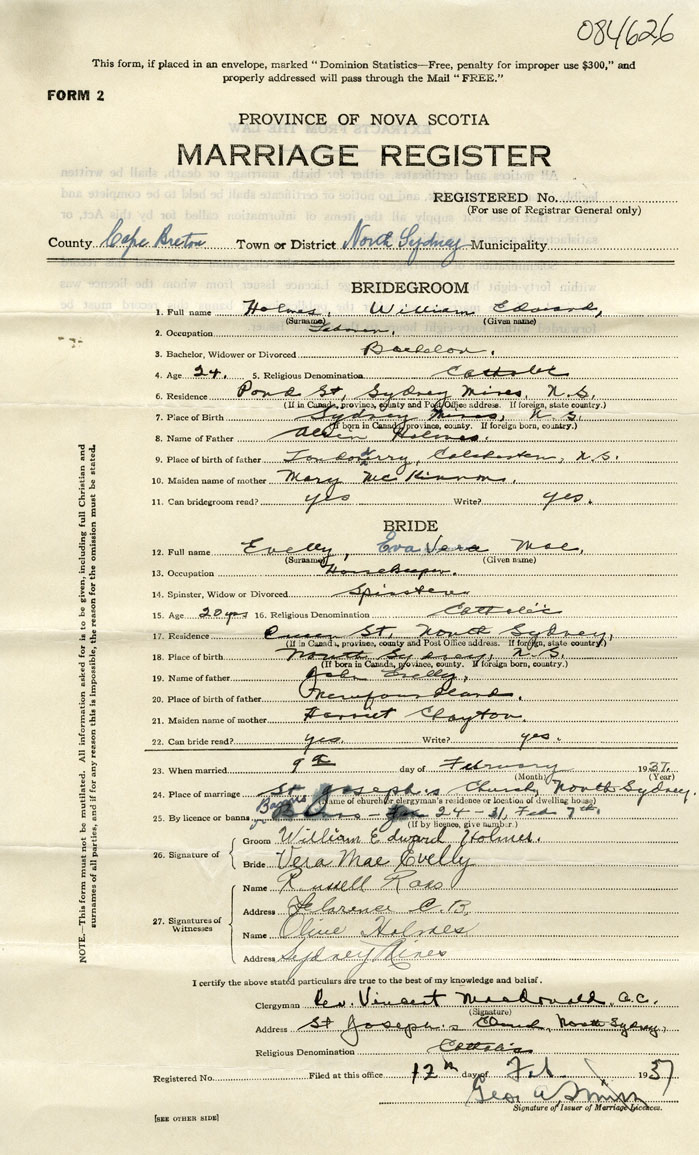 084626
This form, if placed in an envelope, marked "Dominion Statistics—Free, penalty for improper use $300," and
properly addressed will pass through the Mail "FREE."
FORM 2
PROVINCE OF NOVA SCOTIA
MARRIAGE REGISTER
REGISTERED No.
(For use of Registrar General only)
County Cape Breton Town or District North Sydney Municipality
BRIDEGROOM
1. Full name Holmes, William Edward,
(Surname) (Given name)
2. Occupation
3. Bachelor, Widower or Divorced Bachelor.
4. Age 24. 5. Religious Denomination Catholic
6. Residence Pond St, Sydney Mines, N.S.
(If in Canada, province, county and Post Office address. If foreign, state country.)
7. Place of Birth Sydney Mines, N.S.
(If born in Canada, province, county. If foreign born, country.)
8. Name of Father Holmes.
9. Place of birth of father Londonderry, Colchester, N.S.
10. Maiden name of mother Mary McKinnon.
11. Can bridegroom read? yes Write? yes.
BRIDE
12. Full name Evelly, Eva Vera Mae,
(Surname) (Given name)
13. Occupation Housekeeper.
14. Spinster, Widow or Divorced Spinster
15. Age 20 yrs 16. Religious Denomination Catholic
17. Residence Queen St, North Sydney,
(If in Canada, province, county and Post Office address. If foreign, state country.)
18. Place of birth North Sydney, N.S.
(If born in Canada, province, county. If foreign born, country.)
19. Name of father John Evelly,
20. Place of birth of father Newfoundland.
21. Maiden name of mother Harriet Clayton.
22. Can bride read? yes. Write? yes.
23. When married 9th day of February 1937
(Month) (Year)
24. Place of marriage St Joseph's Church, North Sydney.
(Name of church or clergyman's residence or location of dwelling house)
25. By licence or banns Banns Jan 24 - 31, Feb 7th.
(If by licence, give number.)
26. Signature of
Groom William Edward Holmes.
Bride Vera Mae Evelly
27. Signatures of Witnesses
Name Russell Ross
Address Florence C.B.
Name Olive Holmes
Address Sydney Mines
I certify the above stated particulars are true to the best of my knowledge and belief.
Clergyman Rev. Vincent MacDonald, C.C.
(Signature)
Address St Joseph's North Sydney,
Religious Denomination Catholic
Registered No. Filed at this office 12th day of Feb 1937
Geo
Signature of Issuer of Marriage Licences.
[SEE OTHER SIDE]
NOTE.—This form must not be mutilated. All information asked for is to be given, including full Christian and
surnames of all parties, and if for any reason this is impossible, the reason for the omission must be stated.